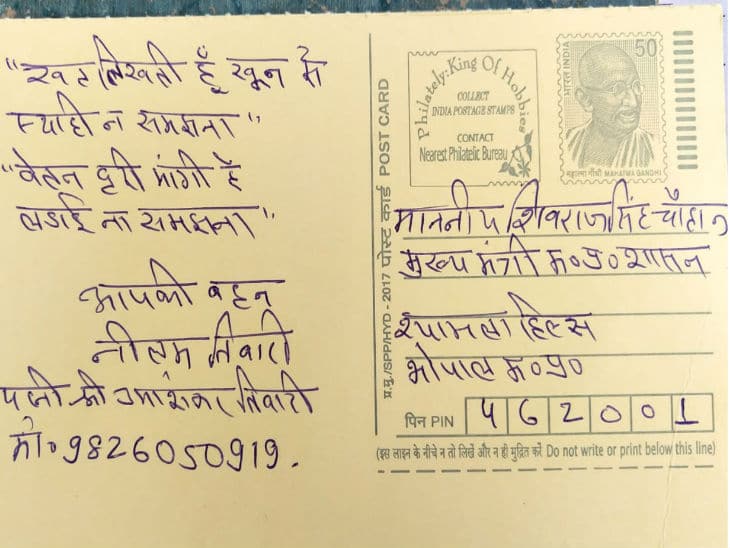 "खत लिखती हूँ खून से
स्याही न समझना"
"वेतन दरी मांगी है
लडाई ना समझना"
आपकी बहन
नीलम तिवारी
पत्नी श्री उमाशंकर तिवारी
मो० 9826050919.
Philately: King Of Hobbies
COLLECT
INDIA POSTAGE STAMPS
CONTACT
Nearest Philatelic Bureau
भारत INDIA
50
महात्मा गाँधी MAHATMA GANDHI
प्र.मु./SPP/HYD - 2017 पोस्ट कार्ड POST CARD
माननीय शिवराज सिंह चौहान
मुख्य मंत्री म०प्र० शासन
श्यामला हिल्स
भोपाल म०प्र०
पिन PIN 462001
(इस लाइन के नीचे न तो लिखें और न ही मुद्रित करें Do not write or print below this line)